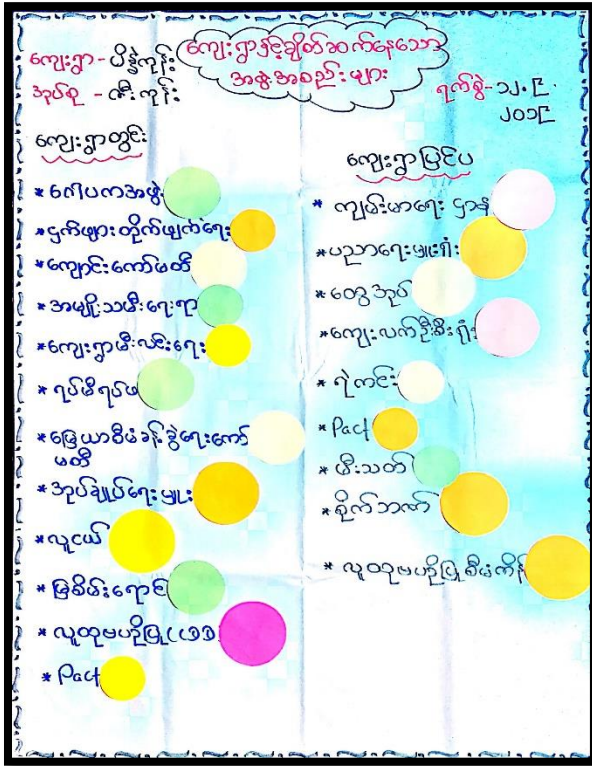 ကျေးရွာနှင့်ချိတ်ဆက်နေသော
အဖွဲ့အစည်းများ
ကျေးရွာ - ပိန္နဲကုန်း
အုပ်စု - ဇီးကုန်း
ရက်စွဲ - ၁၂.၉.
၂၀၁၉
ကျေးရွာတွင်း
* ဂေါပကအဖွဲ့
* ငှက်ဖျားတိုက်ဖျက်ရေး
* ကျောင်းကော်မတီ
* အမျိုးသမီးရေးရာ
* ကျေးရွာမီးလင်းရေး
* ရပ်မိရပ်ဖ
* မြေယာစီမံခန့်ခွဲရေးကော်
မတီ
* အုပ်ချုပ်ရေးမှူး
* လူငယ်
* မြစိမ်းရောင်
* လူထုဗဟိုပြု CDD
* Pact
ကျေးရွာပြင်ပ
* ကျမ်းမာရေးဌာန
* ပညာရေးမှူးရုံး
* ထွေအုပ်
* ကျေးလက်ဦးစီးရုံး
* ရဲကင်း
* Pact
* မီးသတ်
* စိုက်ဘဏ်
* လူထုဗဟိုပြုစီမံကိန်း